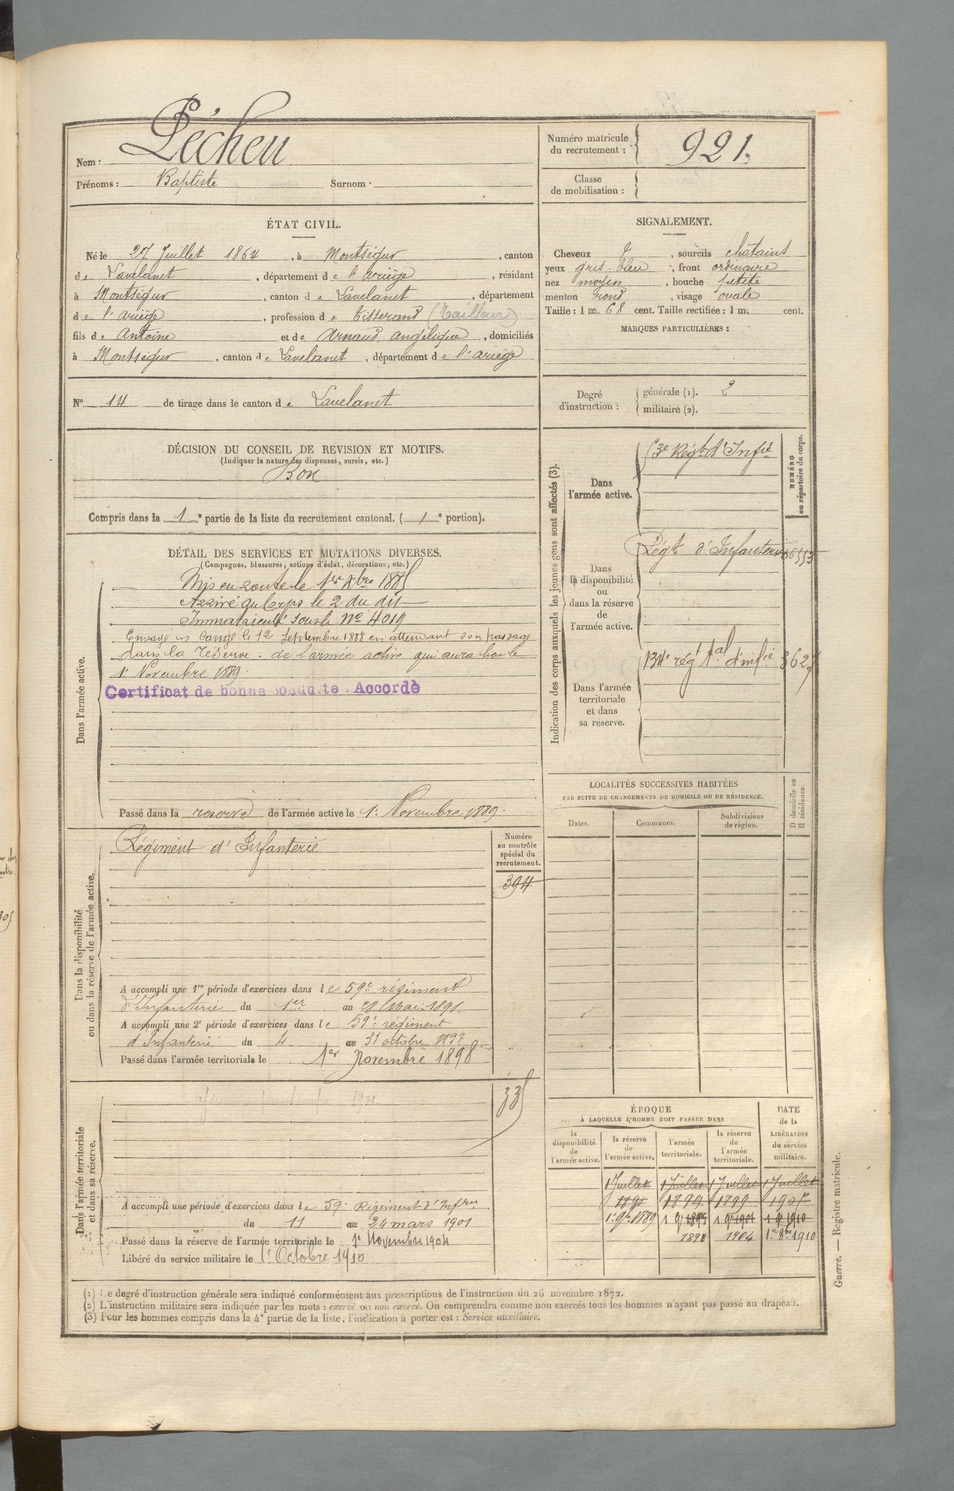 Nom : Pécheu
Prénoms : Baptiste Surnom :
Numéro matricule du recrutement : 921.
Classe de mobilisation :
ÉTAT CIVIL.
Né le 27 Juillet 1864, à Montségur, canton
de Lavelanet, département de l'ariège, résidant
à Montségur, canton de Lavelanet, département
de l'ariège, profession de tisserand (Tailleur)
fils de Antoine et de Arnaud angélique, domiciliés
à Montségur, canton de Lavelanet, département de l'ariège
SIGNALEMENT.
Cheveux, sourcils chatains
yeux gris-bleu, front ordinaire
nez moyen, bouche petite
menton rond, visage ovale
Taille : 1 m. 68 cent. Taille rectifiée : 1 m. cent.
MARQUES PARTICULIÈRES :
N° 14 de tirage dans le canton de Lavelanet
Degré d'instruction : générale (1). 2
militaire (2).
DÉCISION DU CONSEIL DE REVISION ET MOTIFS.
(Indiquer la nature des dispenses, sursis, etc.)
Bon
Compris dans la 1e partie de la liste du recrutement cantonal. (1e portion).
DÉTAIL DES SERVICES ET MUTATIONS DIVERSES.
(Campagnes, blessures, actions d'éclat, décorations, etc.)
Dans l'armée active.
Mis en route le 1er Xbre 1885
Arrivé au Corps le 2 du dit
Immatriculé sous le N° 4019
Envoyé en Congé le 12 Septembre 1888 en attendant son passage
dans la réserve de l'armée active qui aura lieu le
1r Novembre 1889
Certificat de bonne conduite Accordé
Passé dans la reserve de l'armée active le 1r Novembre 1889.
Indication des corps auxquels les jeunes gens sont affectés (3).
NUMÉRO au répertoire du corps.
Dans l'armée active.
Régt d'Infie
Dans la disponibilité ou dans la réserve de l'armée active.
Régt d'Infanterie
Dans l'armée territoriale et dans sa réserve.
134e régt tal d'infie
Dans la disponibilité ou dans la réserve de l'armée active.
Régiment d'Infanterie
Numéro au contrôle spécial du recrutement.
394
A accompli une 1re période d'exercices dans le 59e régiment
d'Infanterie du 1er au mai 1891
A accompli une 2e période d'exercices dans le 59e régiment
d'Infanterie du 4 au 31 octobre
Passé dans l'armée territoriale le 1er Novembre 1898
LOCALITÉS SUCCESSIVES HABITÉES
PAR SUITE DE CHANGEMENTS DE DOMICILE OU DE RÉSIDENCE.
Dates. Communes. Subdivisions de région. D domicile ou R résidence.
Dans l'armée territoriale et dans sa réserve.
A accompli une période d'exercices dans le 59e Régiment d'Infrie
du 11 au 24 mars 1901
Passé dans la réserve de l'armée territoriale le 1r Novembre 1904
Libéré du service militaire le 1r Octobre 1910
ÉPOQUE
À LAQUELLE L'HOMME DOIT PASSER DANS
DATE de la LIBÉRATION du service militaire.
la disponibilité de l'armée active. la réserve de l'armée active. l'armée territoriale. la réserve de l'armée territoriale.
1 Juillet 1 Juillet 1 Juillet 1 Juillet
1894 1899
1r 9bre 1889
1898 1904 1910
(1) Le degré d'instruction générale sera indiqué conformément aux prescriptions de l'instruction du 26 novembre 1872.
(2) L'instruction militaire sera indiquée par les mots : exercé ou non exercé. On comprendra comme non exercés tous les hommes n'ayant pas passé au drapeau.
(3) Pour les hommes compris dans la 4e partie de la liste, l'indication à porter est : Service auxiliaire.
Guerre. — Registre matricule.